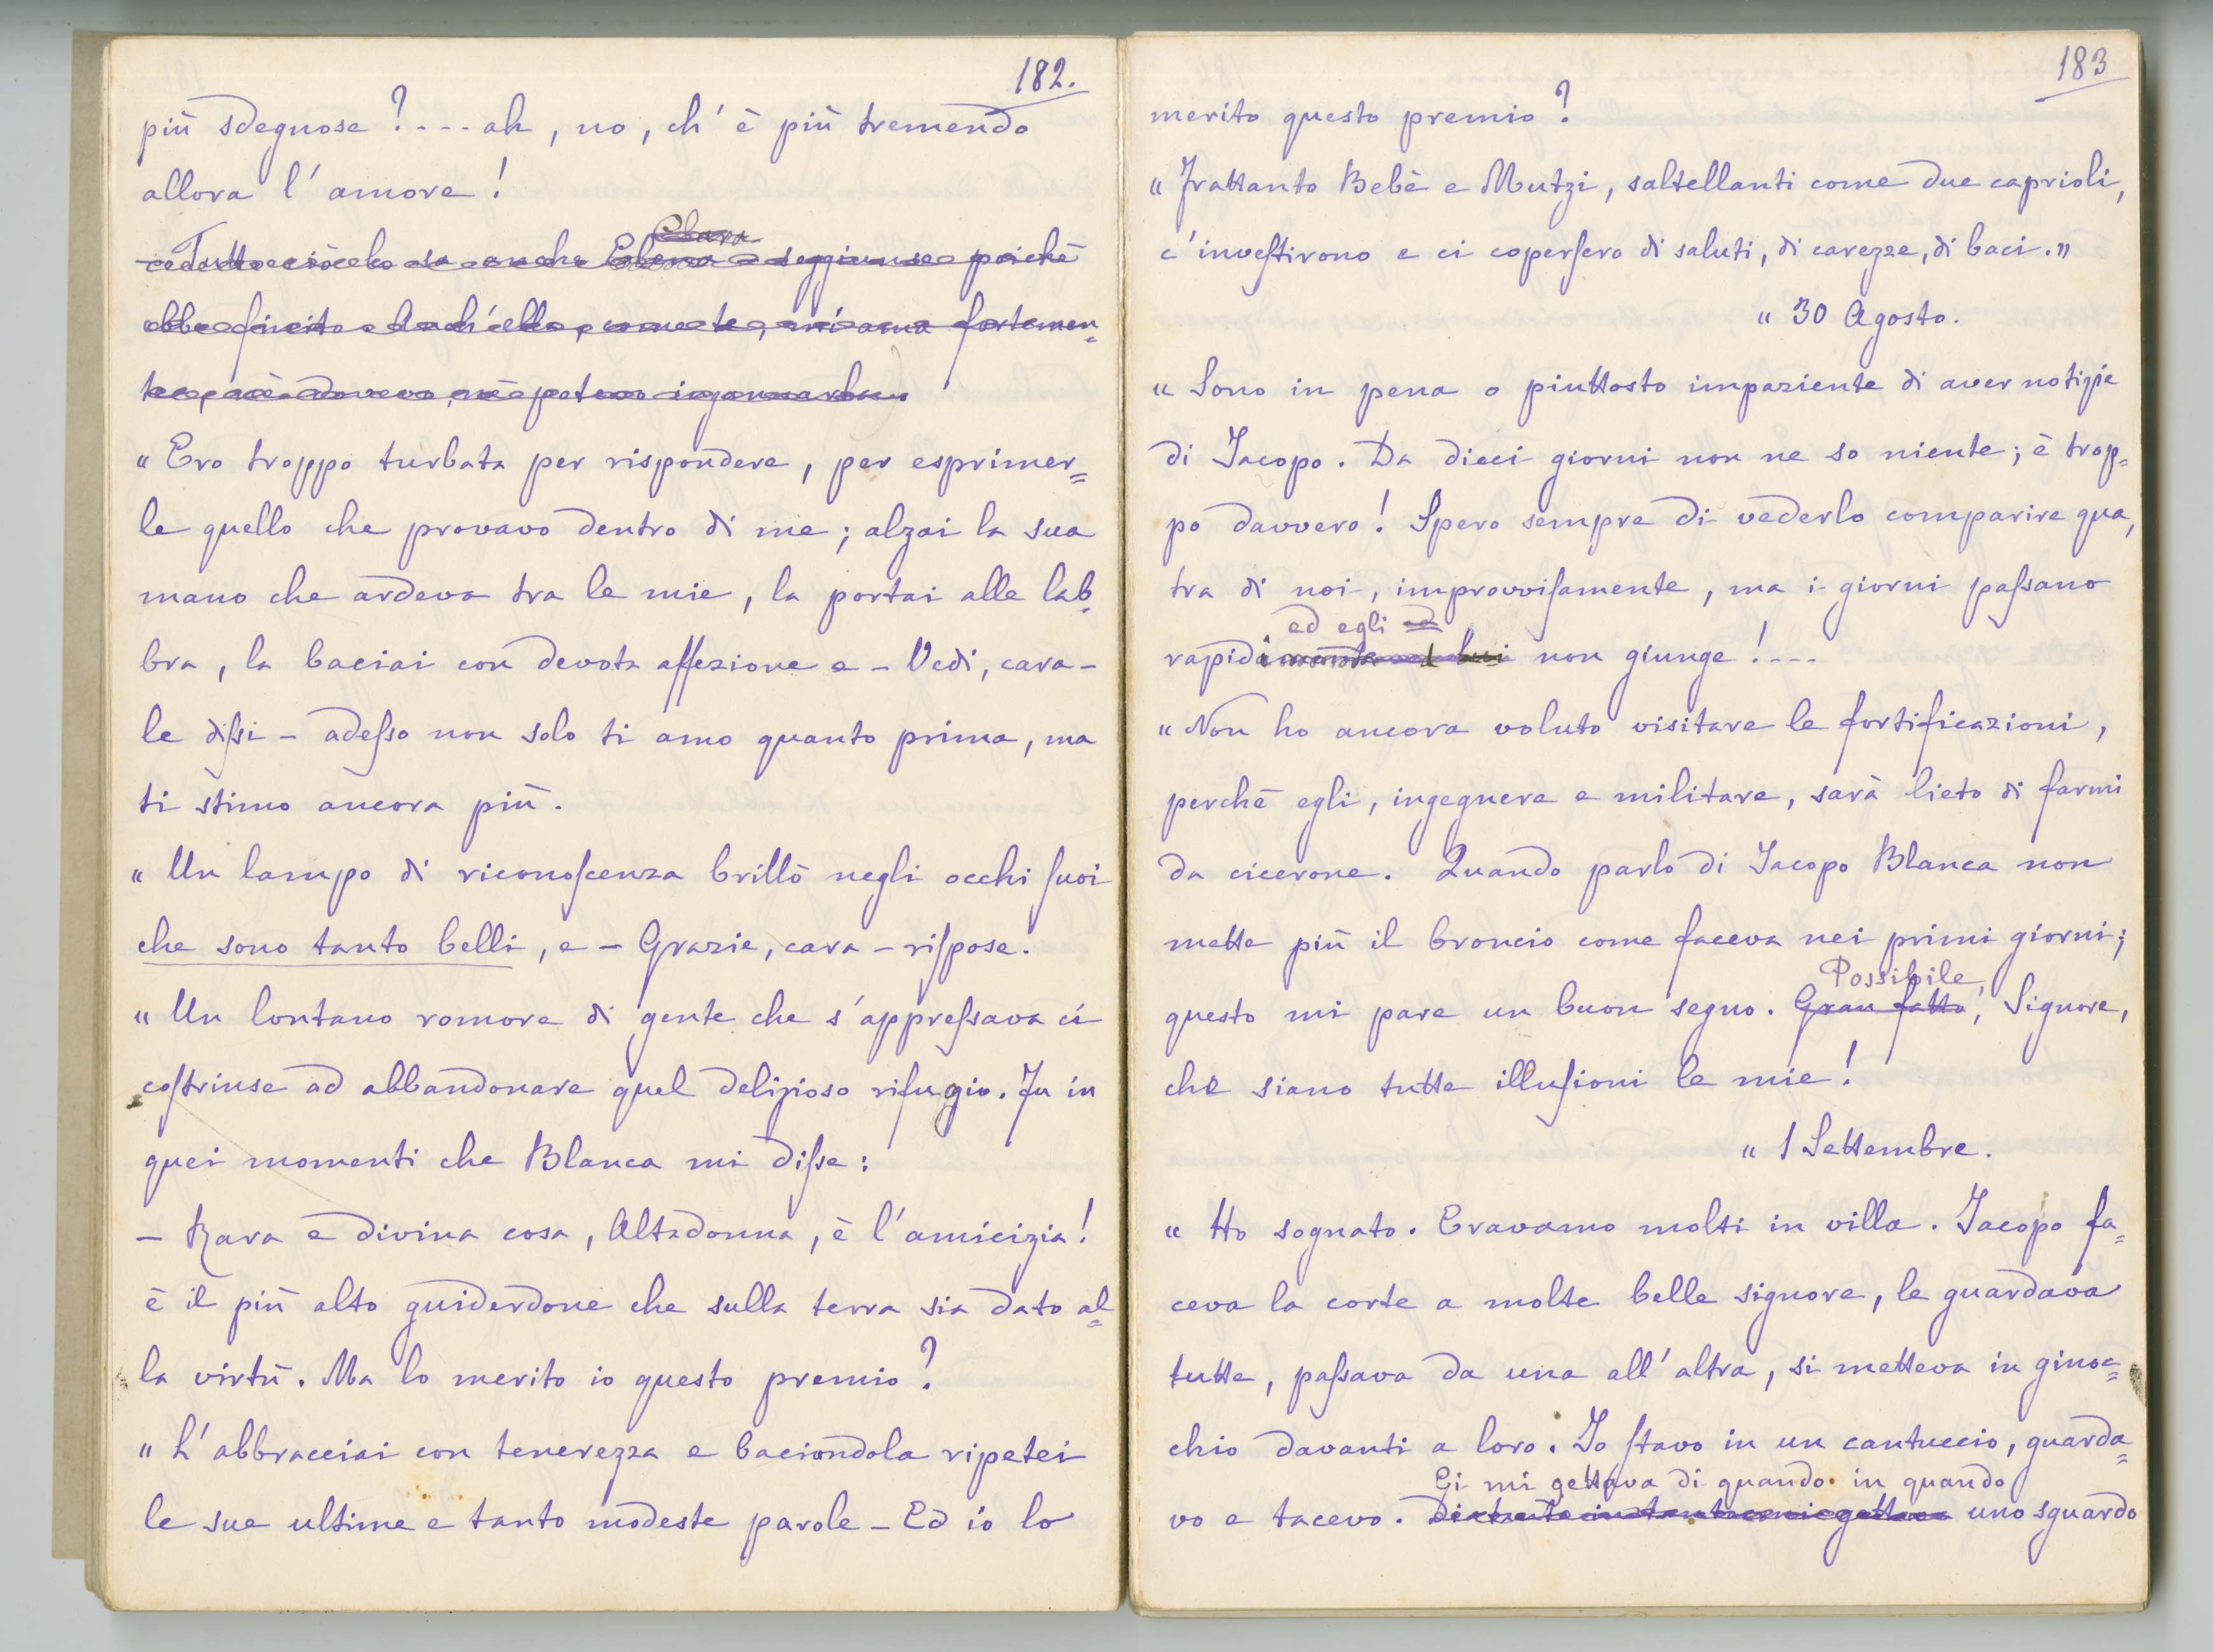 182.
più sdegnose?.... ah, no, ch' è più tremendo
allora l' amore!
Clara
- Tutto ciò lo sa anche Elena - soggiunse poichè
ebbe finito - Anch' ella, come te, mi ama fortemen=
te, nè doveva, nè poteva ingannarla.
" Ero troppo turbata per rispondere, per esprimer=
le quello che provavo dentro di me; alzai la sua
mano che ardeva tra le mie, la portai alle lab=
bra, la baciai con devota affezione e - Vedi, cara -
le dissi - adesso non solo ti amo quanto prima, ma
ti stimo ancora più.
" Un lampo di riconoscenza brillò negli occhi suoi
che sono tanto belli, e - Grazie, cara - rispose.
" Un lontano romore di gente che s' appressava ci
costrinse ad abbandonare quel delizioso rifugio. Fu in
quei momenti che Blanca mi disse:
- Rara e divina cosa, Altadonna, è l' amicizia!
è il più alto guiderdone che sulla terra sia dato al=
la virtù. Ma lo merito io questo premio?
" L' abbracciai con tenerezza e baciandola ripetei
le sue ultime e tanto modeste parole - Ed io lo
183
merito questo premio?
" Frattanto Bebè e Mutzi, saltellanti come due caprioli,
c' investirono e ci copersero di saluti, di carezze, di baci."
" 30 Agosto.
" Sono in pena o piuttosto impaziente di aver notizie
di Jacopo. Da dieci giorni non ne so niente; è trop=
po davvero! Spero sempre di vederlo comparire qua,
tra di noi, improvvisamente, ma i giorni passano
ed egli
rapidi non giunge!...
" Non ho ancora voluto visitare le fortificazioni,
perchè egli, ingegnere e militare, sarà lieto di farmi
da cicerone. Quando parlo di Jacopo Blanca non
mette più il broncio come faceva nei primi giorni;
Possibile,
questo mi pare un buon segno. Gran fatto, Signore,
che siano tutte illusioni le mie!
" 1 Settembre.
" Ho sognato. Eravamo molti in villa. Jacopo fa=
ceva la corte a molte belle signore, le guardava
tutte, passava da una all' altra, si metteva in ginoc=
chio davanti a loro. Io stavo in un cantuccio, guarda=
Ei mi gettava di quando in quando
vo e tacevo. Di tanto in tanto mi gettava uno sguardo